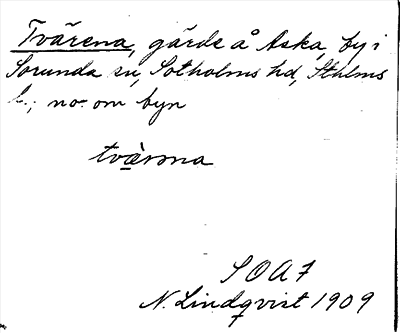 Tvärena, gärde å Aska, by i
Sorunda sn, Sotholms hd, Sthlms
l.; no. om byn
tvä̀rna
SOAF
N. Lindqvist 1909